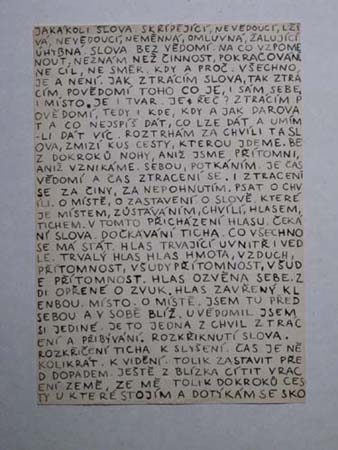 JAKÁKOLI SLOVA. SKŘÍPĚJÍCÍ, NEVEDOUCÍ, LŽI
VÁ, NEVĚDOUCÍ, NEMĚNNÁ, OMLUVNÁ, ŽALUJÍCÍ
ÚHYBNÁ. SLOVA BEZ VĚDOMÍ. NA CO VZPOME
NOUT, NEZNÁM NEŽ ČINNOST, POKRAČOVÁN
NE CÍL, NE SMĚR. KDY A PROČ. VŠECHNO
JE A NENÍ. JAK ZTRÁCÍM SLOVA, TAK ZTRÁ
CÍM. POVĚDOMÍ TOHO CO JE, I SÁM SEBE,
I MÍSTO. JE I TVAR. JE ŘEČ? ZTRÁCÍM P
OVĚDOMÍ, TEDY I KDE, KDY A JAK DAROVA
T A CO NEJSPÍŠ DÁT, CO LZE DÁT A UMÍM
-LI DÁT VÍC. ROZTRHÁM ZA CHVÍLI TA SL
OVA, ZMIZÍ KUS CESTY, KTEROU JDEME. BE
Z DOKROKŮ NOHY, ANIŽ JSME PŘÍTOMNI,
ANIŽ VZNIKÁME. SEBOU, POTKÁNÍM. JE ČAS
VĚDOMÍ A ČAS ZTRÁCENÍ SE. I ZTRÁCENÍ
SE ZA ČINY, ZA NEPOHNUTÍM. PSÁT O CHV
ÍLI. O MÍSTĚ, O ZASTAVENÍ O SLOVĚ, KTERÉ
JE MÍSTEM, ZŮSTÁVÁNÍM, CHVÍLÍ, HLASEM,
TICHEM. V TOMTO PŘICHÁZENÍ HLASU. ČEKÁ
NÍ SLOVA. DOČKÁVÁNÍ TICHA. CO VŠECHNO
SE MÁ STÁT. HLAS TRVAJÍCÍ UVNITŘ I VED
LE. TRVALÝ HLAS HLAS HMOTA, VZDUCH,
PŘÍTOMNOST, VŠUDY PŘÍTOMNOST, VŠUD
E PŘÍTOMNOST. HLAS OZVĚNA SEBE. Z
DI OPŘENÉ O ZVUK. HLAS ZAVŘENÝ KL
ENBOU. MÍSTO. O MÍSTĚ. JSEM TU PŘED
SEBOU A V SOBĚ BLÍŽ. UVĚDOMIL JSEM
SI JEDINĚ. JE TO JEDNA Z CHVIL ZTRÁC
ENÍ A PŘIBÝVÁNÍ. ROZKŘIKNUTÍ SLOVA.
ROZKŘIČENÍ TICHA K SLYŠENÍ. ČAS JE NĚ
KOLIKRÁT. K VIDĚNÍ. TOLIK ZASTAVIT PŘE
D DOPADEM. JEŠTĚ Z BLÍZKA CÍTIT VRÁC
ENÍ ZEMĚ, ZE MĚ. TOLIK DOKROKŮ CES
TY U KTERÉ STOJÍM A DOTÝKÁM SE SKO